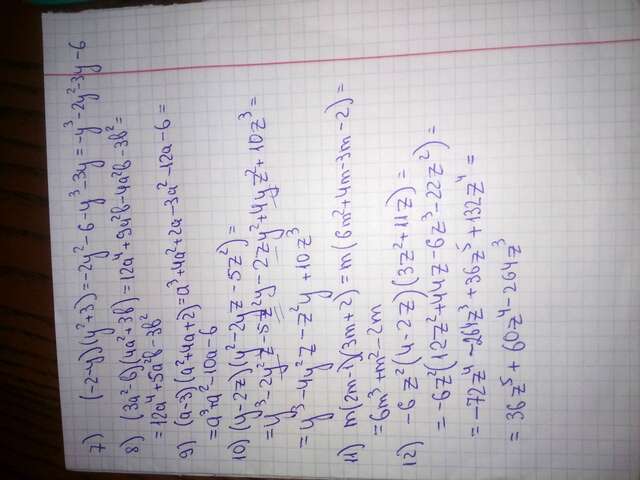 7) (-2-y)(y²+3)=-2y²-6-y³-3y=-y³-2y²-3y-6
8) (3a²-b)(4a²+3b)=12a⁴+9a²b-4a²b-3b²=
=12a⁴+5a²b-3b²
9) (a-3)(a²+4a+2)=a³+4a²+2a-3a²-12a-6=
=a³+a²-10a-6
10) (y-2z)(y²-2yz-5z²)=
=y³-2y²z-5z²y-2zy²+4yz²+10z³=
=y³-4y²z-z²y+10z³
11) m(2m-1)(3m+2)=m(6m²+4m-3m-2)=
=6m³+m²-2m
12) -6z²(4-2z)(3z²+11z)=
=-6z²(12z²+44z-6z³-22z²)=
=-72z⁴-264z³+36z⁵+132z⁴=
=36z⁵+60z⁴-264z³